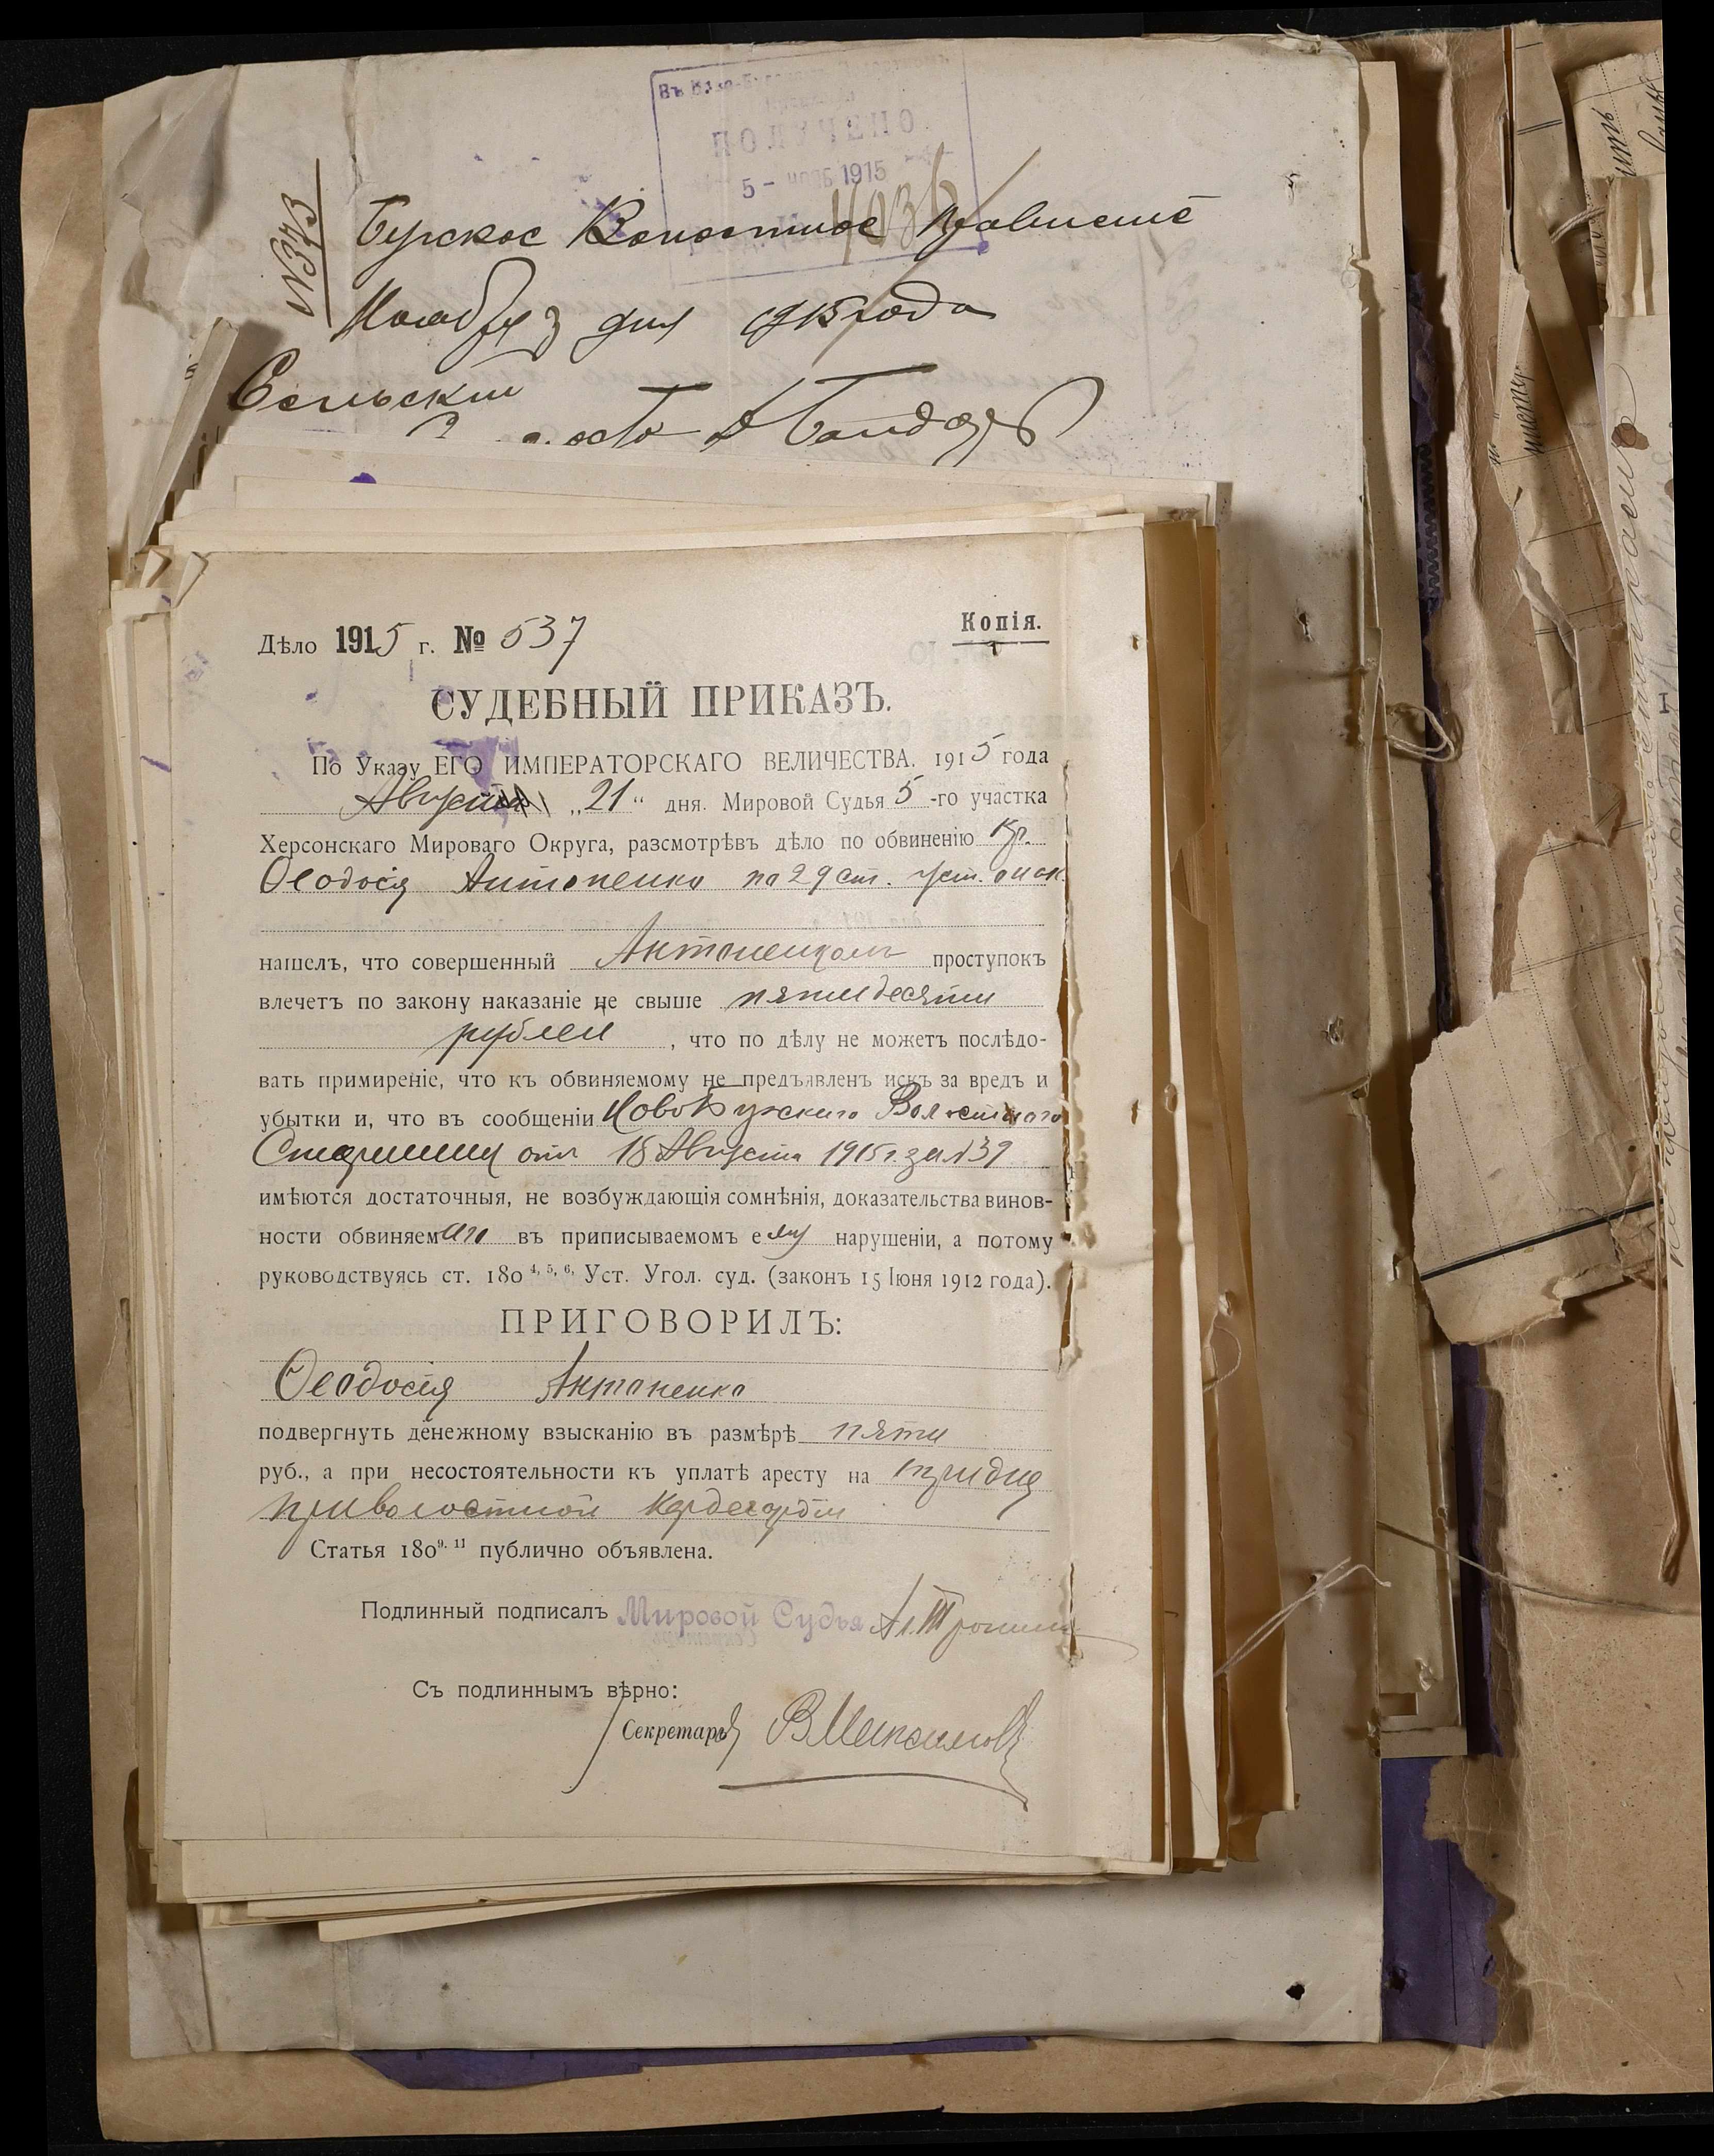 ПОЛУЧЕНО
5 - НОЯБ 1915
№373
Бугское Волостное Правление
Ноября 3 дня 1915 года
Сельский
Дѣло 1915 г. № 537
Копія.
СУДЕБНЫЙ ПРИКАЗЪ.
По Указу ЕГО ИМПЕРАТОРСКАГО ВЕЛИЧЕСТВА. 1915 года
Августа „21“ дня. Мировой Судья 5-го участка
Херсонскаго Мироваго Округа, разсмотрѣвъ дѣло по обвиненію кр.
Ѳеодосія Антоненко по 29 ст. Уст. о нак.
нашелъ, что совершенный Антоненкомъ проступокъ
влечетъ по закону наказаніе не свыше пятидесяти
рублей, что по дѣлу не можетъ послѣдо-
вать примиреніе, что къ обвиняемому не предъявленъ искъ за вредъ и
убытки и, что въ сообщеніи Ново Бугскаго Волостного
Старшины отъ 18 Августа 1915 г. за №39
имѣются достаточныя, не возбуждающія сомнѣнія, доказательства винов-
ности обвиняемаго въ приписываемомъ ему нарушеніи, а потому
руководствуясь ст. 180 4, 5, 6, Уст. Угол. суд. (законъ 15 Іюня 1912 года).
ПРИГОВОРИЛЪ:
Ѳеодосія Антоненко
подвергнуть денежному взысканію въ размѣрѣ пяти
руб., а при несостоятельности къ уплатѣ аресту на три дня
при волостной кордегардіи
Статья 180 9. 11 публично объявлена.
Подлинный подписалъ Мировой Судья
Съ подлиннымъ вѣрно:
Секретарь